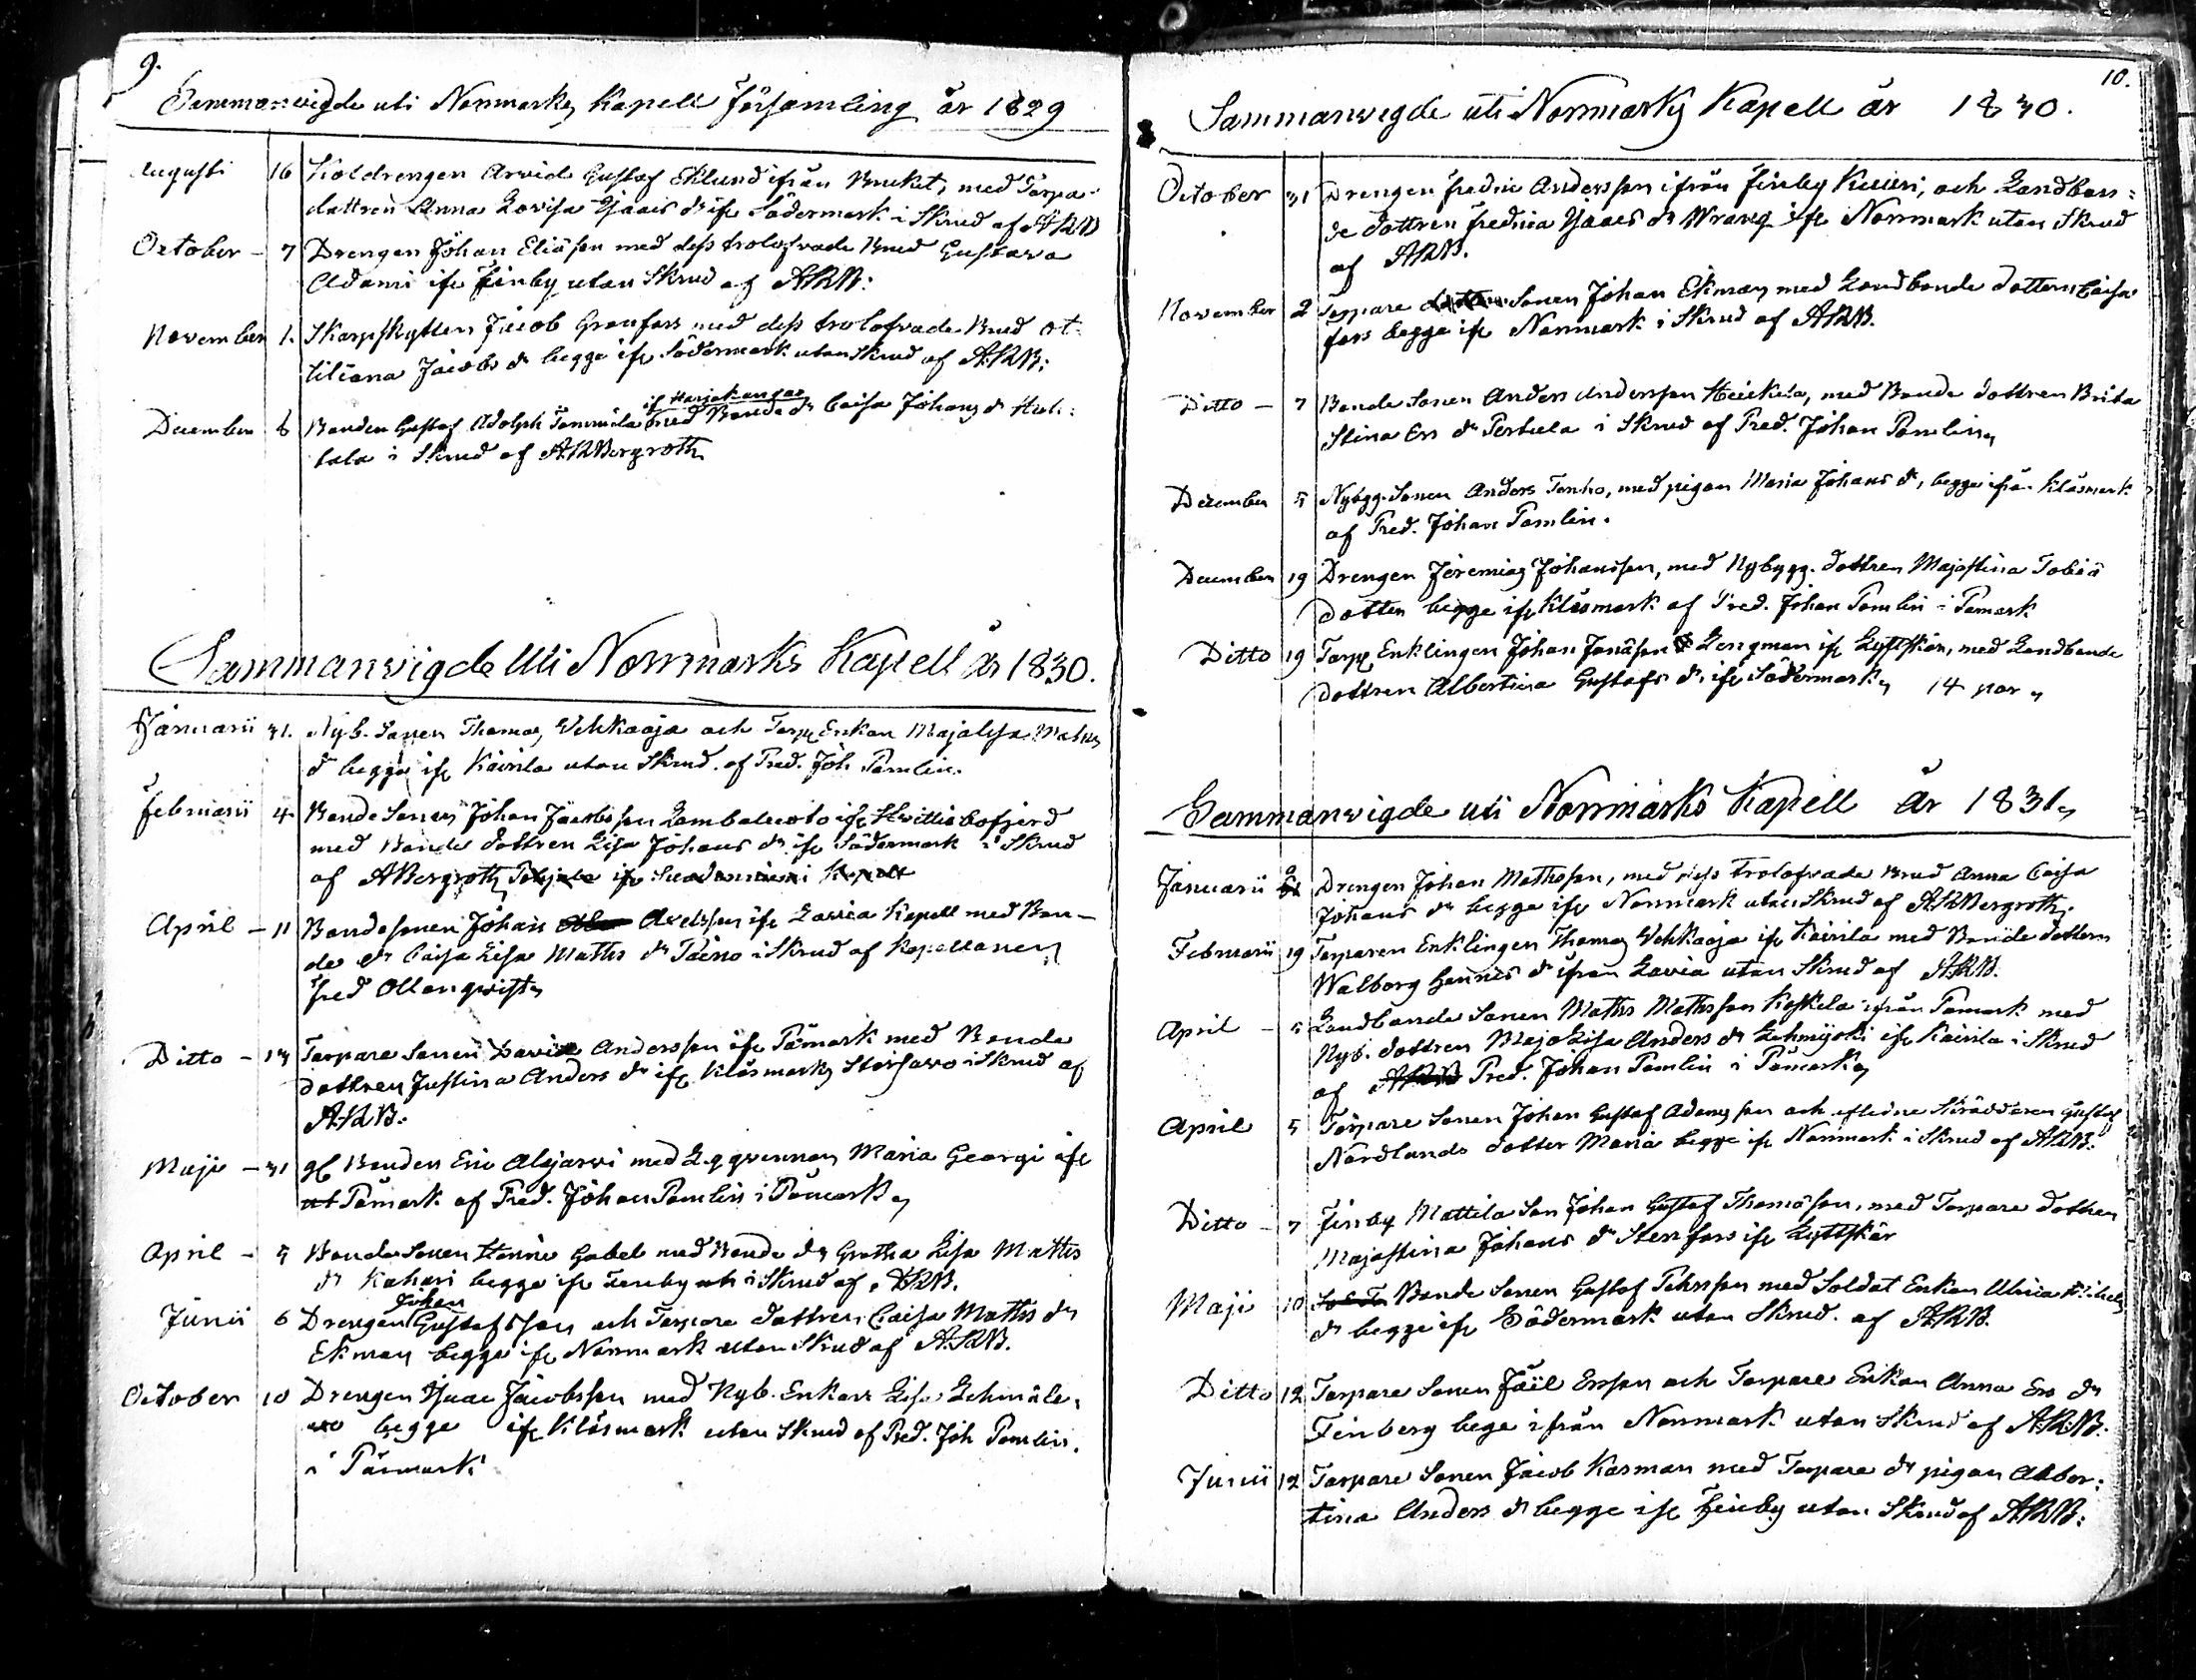 9.
Sammanvigde uti Norrmarks Kapell Församling år 1829
Augusti 16 Koldrengen Arvid Gustaf Eklund ifrån Bruket, med Torpa-
dottren Anna Lovisa Isaacs dr ifr Södermark i Skrud af ARB
October - 7 Drengen Johan Eliasson med dess trolofvade Brud Gustava
Adami ifr Finby utan Skrud af ARB:
November 1. Skarpskytten Jacob Granfors med dess trolofvade Brud Ot-
tiliana Jacobs dr begge ifr Södermark utan Skrud af ARB:
if Harjakangas
December 6 Bonden Gustaf Adolph Tommila med Bonde dr Caisa Johans dr Huh-
tala i Skrud af ARBergroth
Sammanvigde Uti Norrmarks Kapell år 1830.
Januarii 31. Nyb. Sonen Thomas Vehkaoja och Torp Enkan Majalisa Mats
dr begge ifr Kairila utan Skrud. af Pred. Joh Pomlin.
Februarii 4. Bonde Sonen Johan Jacobsson Lambaluoto ifr Hvittisbofjerd
med Bonde dottren Lisa Johans dr ifr Södermark i Skrud
af ABergroth
April - 11 Bondesonen Johan Axelsson ifr Lavia Kapell med Bon-
de dr Caisa Lisa Matts dr Paino i Skrud af Kapellanen
fred Ollonqvist
Ditto - 13 Torpare Sonen David Andersson ifr Påmark med Bonde
dottren Justina Anders dr ifr Klåsmark Storsavo i Skrud af
ARB:
Maji - 31 gl Bonden Eric Alajarvi med Lqqvinnan Maria Georgi ifr
Påmark af Pred. Johan Pomlin i Påmark
April - 5 Bonde Sonen Henric Gabel med Bonde dr Gretha Lisa Matts
dr Kahari begge ifr Finby i Skrud af ARB.
Johan
Junii 6 Drengen Gustafsson och Torpare dottren Caisa Matts dr
Ekman begge ifr Norrmark utan Skrud af ARB.
October 10 Drengen Isaac Jacobsson med Nyb. Enkan Lisa
begge ifr Klåsmark utan Skrud af Pred. Joh Pomlin.
i Påmark
10.
Sammanvigde uti Norrmarks Kapell år 1830.
October 31 Drengen Fredric Andersson ifrån Finby Kuuri, och Landbon-
de dottren Fredrica Isaacs dr Wrang ifr Norrmark utan Skrud
af ARB.
November 2 Torpare Sonen Johan Ekman med Landbonde dottern Caisa
fors begge ifr Norrmark i Skrud af ARB.
Ditto - 7 Bonde Sonen Anders Andersson Heickila, med Bonde dottren Brita
Stina Ers dr Pertula i Skrud af Pred. Johan Pomlin
December 5 Nybygg. Sonen Anders Tenho, med pigan Maria Johans dr, begge ifrån Klåsmark
af Pred. Johan Pomlin.
December 19 Drengen Jeremias Johansson, med Nybygg. dottren Majastina Tobia
dotter begge ifr Klåsmark af Pred. Johan Pomlin i Pomark
Ditto 19 Torp Enklingen Johan Jonasson Lengman ifr Lyttskär, med Landbonde
dottren Albertina Gustafs dr ifr Södermark 14 par
Sammanvigde uti Norrmarks Kapell år 1831
Januarii Drengen Johan Mathsson, med dess trolofvade Brud Anna Caisa
Johans dr begge ifr Norrmark utan Skrud af ARBergroth.
Februarii 19 Torparen Enklingen Thomas Vehkaoja ifr Kairila med Bonde dottern
Walborg Henrics dr ifrån Lavia utan Skrud af ARB.
April - 5 Landbonde Sonen Matts Mathsson Koskela ifrån Påmark med
Nyb. dottren Maja Lisa Anders dr Lehmijoki ifr Kairila i Skrud
af ARB Pred. Johan Pomlin i Påmark
April 5 Torpare Sonen Johan Gustaf Adamsson och aflidne Skräddaren Gustaf
Nordlunds dotter Maria begge ifr Norrmark i Skrud af ARB.
Ditto - 7 Finby Mattila Son Johan Gustaf Thomasson, med Torpare dottren
Majastina Johans dr Stenfors ifr Lyttskär
Maji 10 Bonde Sonen Gustaf Pehrsson med Soldat Enkan Ulrica Michels
dr begge ifr Södermark utan Skrud. af ARB.
Ditto 12 Torpare Sonen Joël Ersson och Torpare Enkan Anna Ers dr
Finberg bege ifrån Norrmark utan Skrud af ARB.
Junii 12 Torpare Sonen Jacob Kasman med Torpare dr pigan Alber-
tina Anders dr begge ifr Finby utan Skrud af ARB: